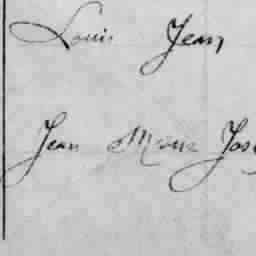 Louis Jean
Jean Marie Jos